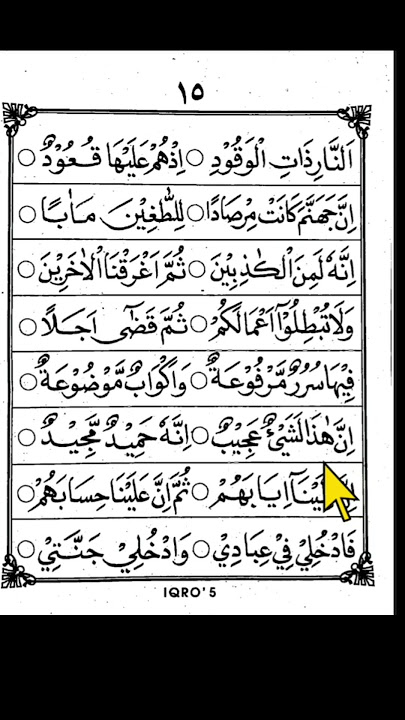 ١٥
اَلنَّارِ ذَاتِ الْوَقُوْدِ ○ اِذْهُمْ عَلَيْهَا قُعُوْدٌ ○
اِنَّ جَهَنَّمَ كَانَتْ مِرْصَادًا ○ لِلطّٰغِيْنَ مَاٰبًا ○
اِنَّهٗ لَمِنَ الْكٰذِبِيْنَ ○ ثُمَّ اَغْرَقْنَا الْاٰخَرِيْنَ ○
وَلَا تُبْطِلُوْٓا اَعْمَالَكُمْ ○ ثُمَّ قَضٰٓى اَجَلًا ○
فِيْهَا سُرُرٌ مَّرْفُوْعَةٌ ○ وَاَكْوَابٌ مَّوْضُوْعَةٌ ○
اِنَّ هٰذَا لَشَيْئٌ عَجِيْبٌ ○ اِنَّهٗ حَمِيْدٌ مَّجِيْدٌ ○
اِيَابَهُمْ ○ ثُمَّ اِنَّ عَلَيْنَا حِسَابَهُمْ ○
فَادْخُلِيْ فِيْ عِبَادِيْ ○ وَادْخُلِيْ جَنَّتِيْ ○
IQRO'5